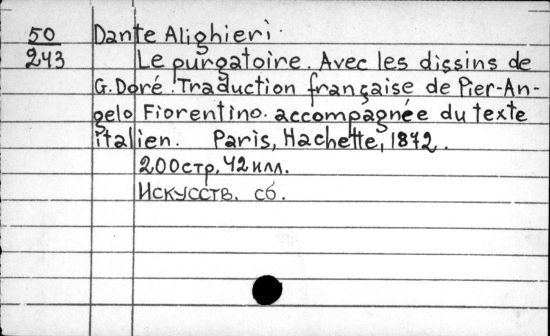 50 Dante Alighieri.
243 Le purgatoire. Avec les dissins de
G. Doré. Traduction française de Pier-An-
gelo Fiorentino. accompagnée du texte
italien. Paris, Hachette, 1872.
200 стр, 42 илл.
Искусств. сб.